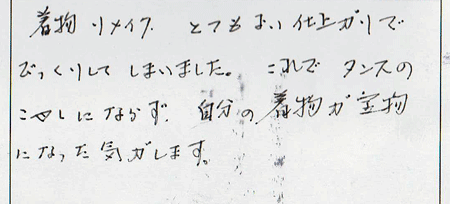 着物 リメイク とてもよい仕上ガリで
びっくりして しまいました。 これで タンスの
こやしにならず 自分の着物が宝物
になった気がします。